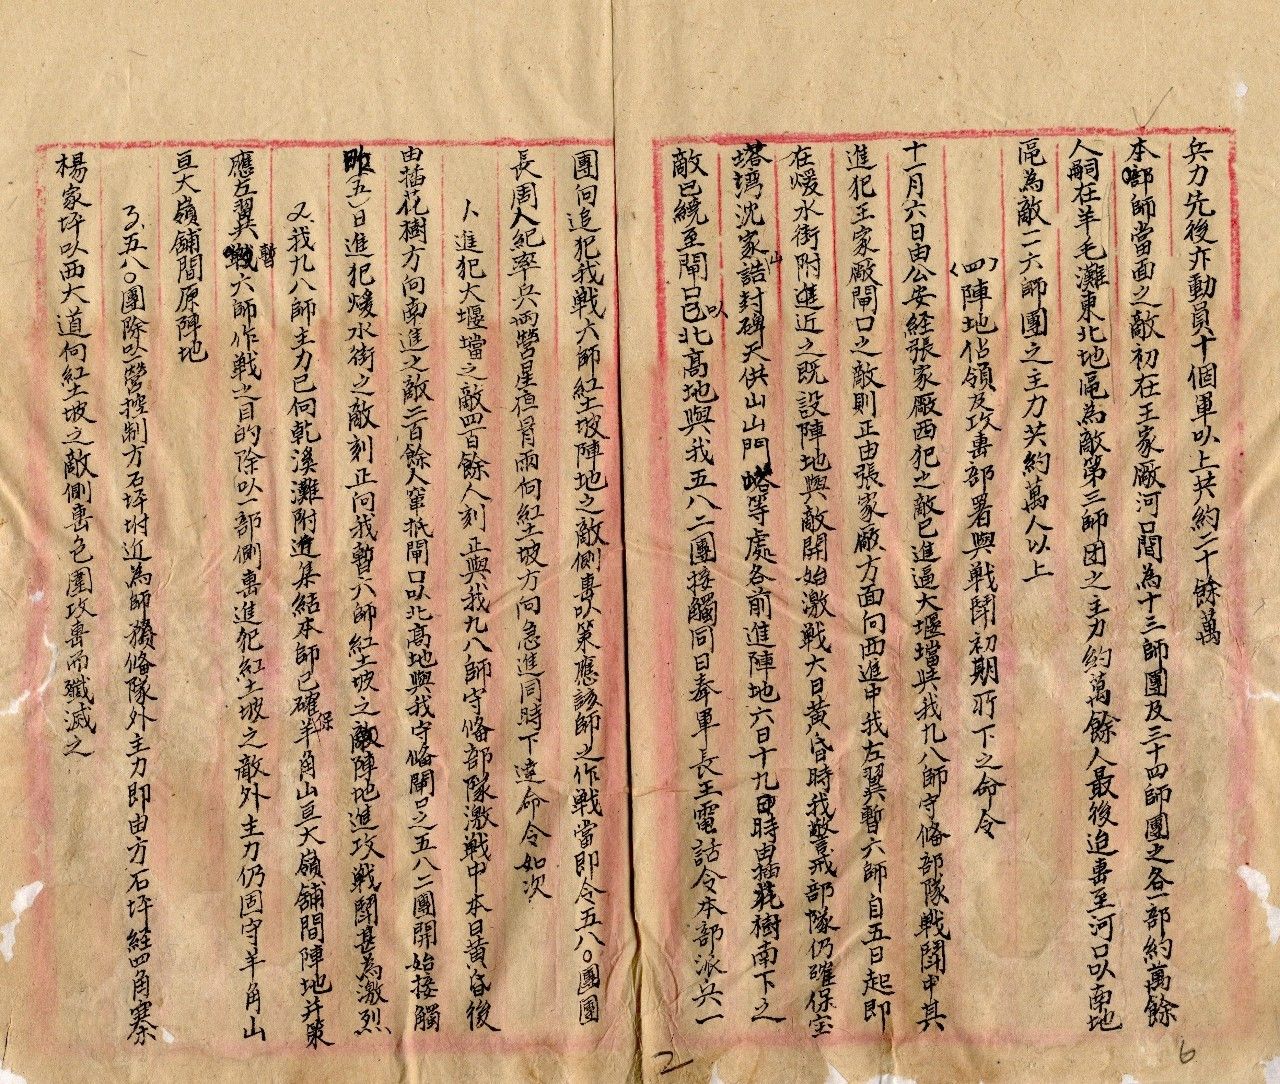 兵力先後亦動員十個軍以上共約二十餘萬
本部師當面之敵初在王家廠河口間為十三師團及三十四師團之各一部約萬餘
人嗣在羊毛灘東北地區為敵第三師团之主力約萬餘人最後追擊至河口以南地
區為敵一一六師團之主力共約萬人以上
(四)陣地佔領及攻擊部署與戰鬪初期所下之命令
十一月六日由公安経張家廠西犯之敵已進逼大堰壋與我九八師守俻部隊戰鬪中其
進犯王家廠閘口之敵則正由張家廠方面向西進中我左翼暫六師自五日起即
在煖水街附進近之既設陣地與敵開始激戰六日黃昏時我警戒部隊仍確保宝
塔灣沈家山誥封碑天供山山門等處各前進陣地六日十九時由插花樹南下之
敵已繞至閘口以北高地與我五八二團接觸同日奉軍長王電話令本部派兵一
團向追犯我戰六師紅土坡陣地之敵側擊以策應該師之作戰當即令五八〇團團
長周人紀率兵兩營星夜冒雨向紅土坡方向急進同時下達命令如次
1.進犯大堰壋之敵四百餘人刻正與我九八師守俻部隊激戰中本日黃昏後
由插花樹方向南進之敵二百餘人竄抵閘口以北高地與我守俻閘口之五八二團開始接觸
昨(五)日進犯煖水街之敵刻正向我暫六師紅土坡之陣地進攻戰鬪甚為激烈
2.我九八師主力已向乾溪灘附近集結本師已確保羊角山亘大嶺舖間陣地并策
應左翼暫六師作戰之目的除以一部側擊進犯紅土坡之敵外主力仍固守羊角山
亘大嶺舖間原陣地
3.五八〇團除以一營控制方石坪坿近為師預俻隊外主力即由方石坪経四角寨
楊家坪以西大道向紅土坡之敵側擊包圍攻擊而殲滅之
2
6